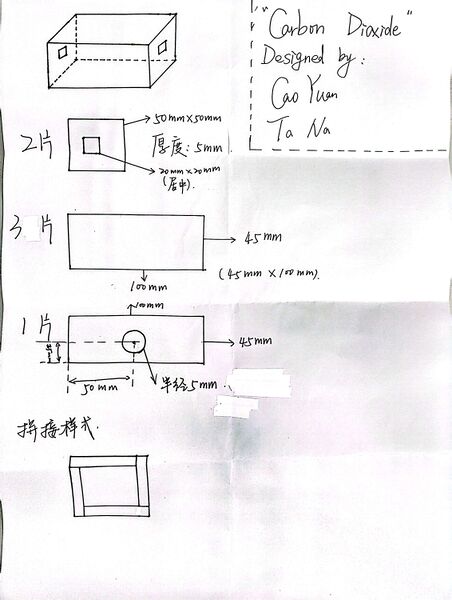 "Carbon Dioxide"
Designed by:
Cao Yuan
Ta Na
2片
50mm×50mm
厚度: 5mm
20mm×20mm
(居中).
3片
45mm
100mm
(45mm×100mm).
1片
100mm
45mm
50mm
半径5mm
拼接样式.